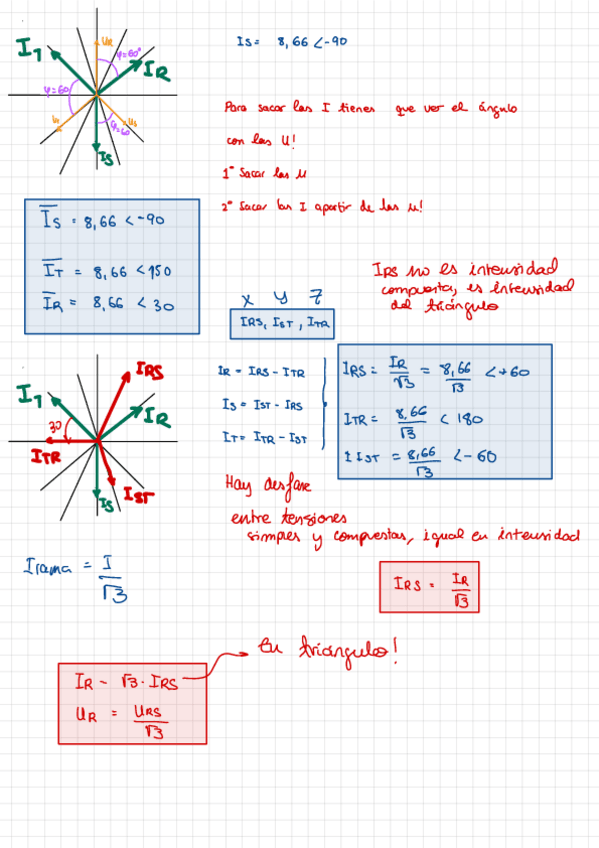 IS = 8,66 <-90
I7
UR
φ=60°
IR
φ=60
φ=60
US
IS
Para sacar las I tienes que ver el ángulo
con las U!
1º Sacar las u
2º Sacar las I apartir de las u!
IS = 8,66 <-90
IT = 8,66 <150
IR = 8,66 < 30
IRS no es intensidad
compuesta, es intensidad
del triángulo
X Y Z
IRS, IST, ITR
I7
IRS
IR
30
ITR
IS
IST
IR = IRS - ITR
IS = IST - IRS
IT = ITR - IST
IRS = IR/√3 = 8,66/√3 <+60
ITR = 8,66/√3 < 180
IST = 8,66/√3 <-60
Hay desfase
entre tensiones
simples y compuestas, igual en intensidad
Irama = I/√3
IRS = IR/√3
En triángulo!
IR = √3 · IRS
UR = URS/√3